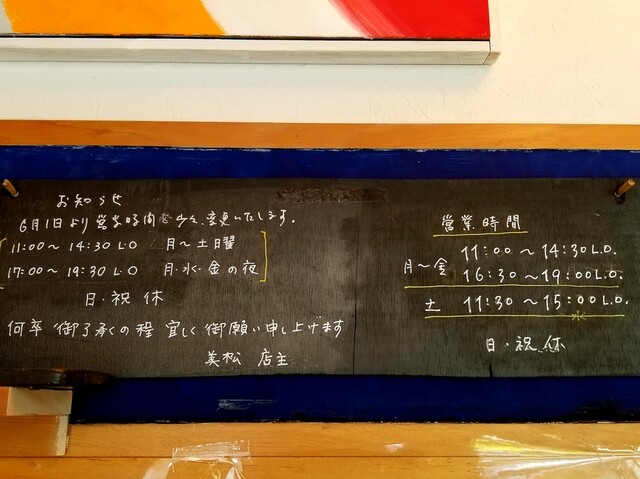 お知らせ
6月1日より営業時間を少々変更いたします。
11:00～14:30 L.O 月～土曜
17:00～19:30 L.O 月・水・金の夜
日・祝 休
何卒 御了承の程 宜しく御願い申し上げます
美松 店主
営業時間
月～金 11:00～14:30 L.O.
16:30～19:00 L.O.
土 11:30～15:00 L.O.
日・祝 休